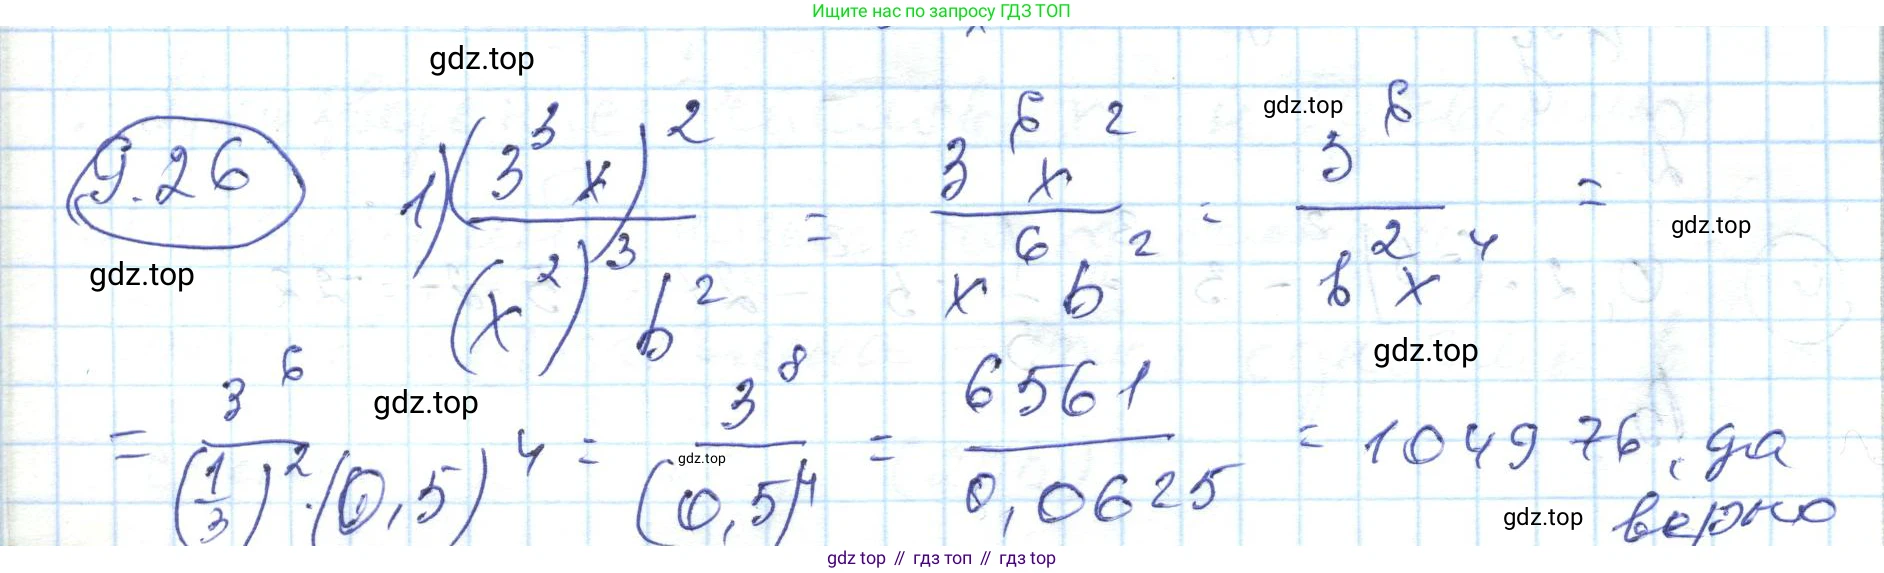 Ищите нас по запросу ГДЗ ТОП
gdz.top
gdz.top
9.26 1) (3³ x)² / (x²)³ b² = 3⁶ x² / x⁶ b² = 3⁶ / b² x⁴ =
gdz.top
gdz.top
gdz.top
= 3⁶ / (1/3)² · (0,5)⁴ = 3⁸ / (0,5)⁴ = 6561 / 0,0625 = 104976, да
верно
gdz.top
gdz.top
gdz.top
gdz.top // гдз топ // гдз top